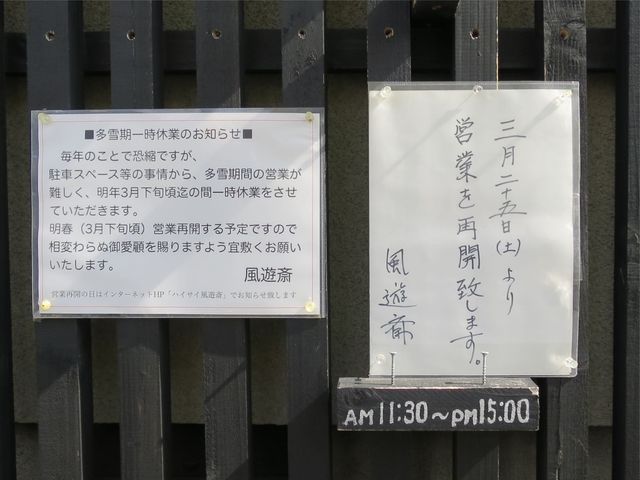 ■多雪期一時休業のお知らせ■
毎年のことで恐縮ですが、
駐車スペース等の事情から、多雪期間の営業が
難しく、明年3月下旬頃迄の間一時休業をさせ
ていただきます。
明春（3月下旬頃）営業再開する予定ですので
相変わらぬ御愛顧を賜りますよう宜敷くお願い
いたします。
風遊斎
営業再開の日はインターネットHP「ハイサイ風遊斎」でお知らせ致します
三月二十五日(土)より
営業を再開致します。
風遊斎
AM11:30～PM15:00